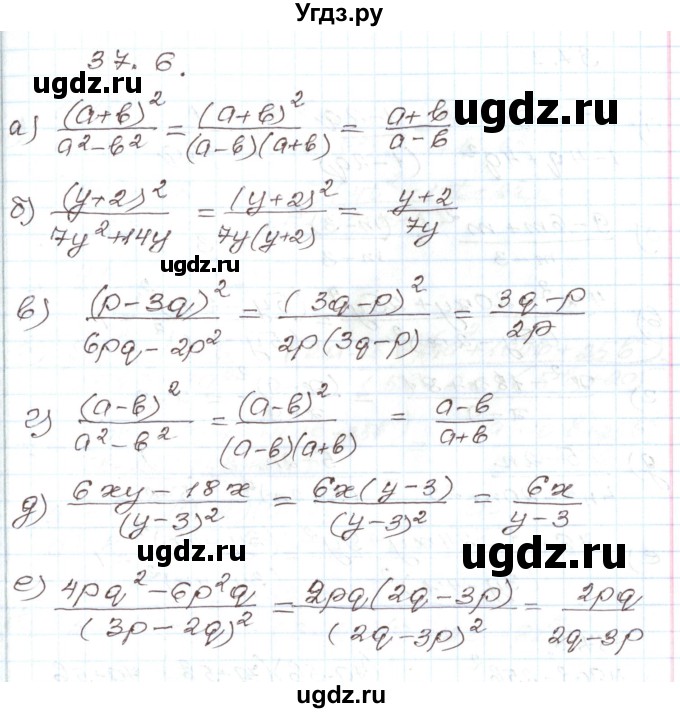 Угдз.ру
37. 6.
ugdz.ru
ugdz.ru
а) (a+b)²/a²-b² = (a+b)²/(a-b)(a+b) = a+b/a-b
б) (y+2)²/7y²+14y = (y+2)²/7y(y+2) = y+2/7y
ugdz.ru
в) (p-3q)²/6pq-2p² = (3q-p)²/2p(3q-p) = 3q-p/2p
ugdz.ru
ugdz.ru
г) (a-b)²/a²-b² = (a-b)²/(a-b)(a+b) = a-b/a+b
д) 6xy-18x/(y-3)² = 6x(y-3)/(y-3)² = 6x/y-3
ugdz.ru
ugdz.ru
е) 4pq²-6p²q/(3p-2q)² = 2pq(2q-3p)/(2q-3p)² = 2pq/2q-3p
ugdz.ru